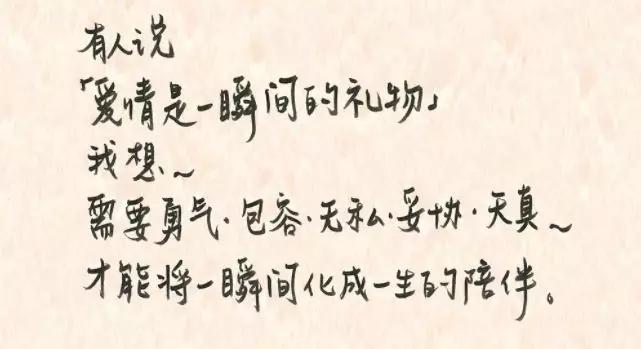 有人说
「爱情是一瞬间的礼物」
我想~
需要勇气·包容·无私·妥协·天真~
才能将一瞬间化成一生的陪伴。